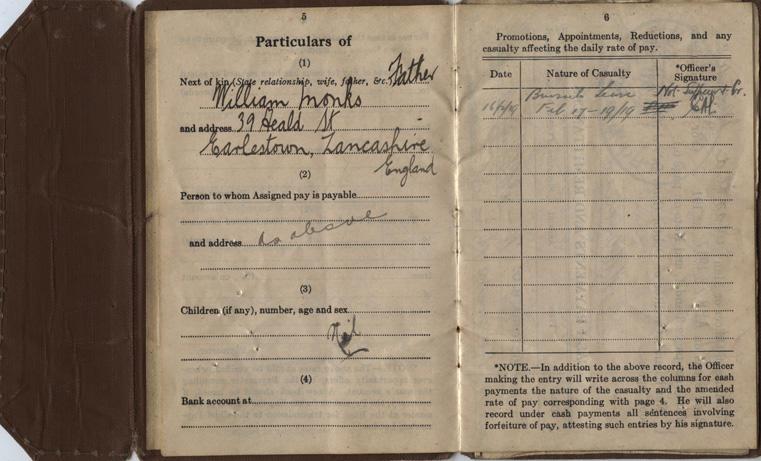 5
Particulars of
(1)
Next of kin (State relationship, wife, father, &c.) Father
William Monks
and address 39 Heald St
Earlestown, Lancashire
England
(2)
Person to whom Assigned pay is payable
and address As above
(3)
Children (if any), number, age and sex
Nil
(4)
Bank account at
6
Promotions, Appointments, Reductions, and any
casualty affecting the daily rate of pay.
Date
Nature of Casualty
*Officer's
Signature
Leave
Feb 17-19/19
*NOTE.—In addition to the above record, the Officer
making the entry will write across the columns for cash
payments the nature of the casualty and the amended
rate of pay corresponding with page 4. He will also
record under cash payments all sentences involving
forfeiture of pay, attesting such entries by his signature.